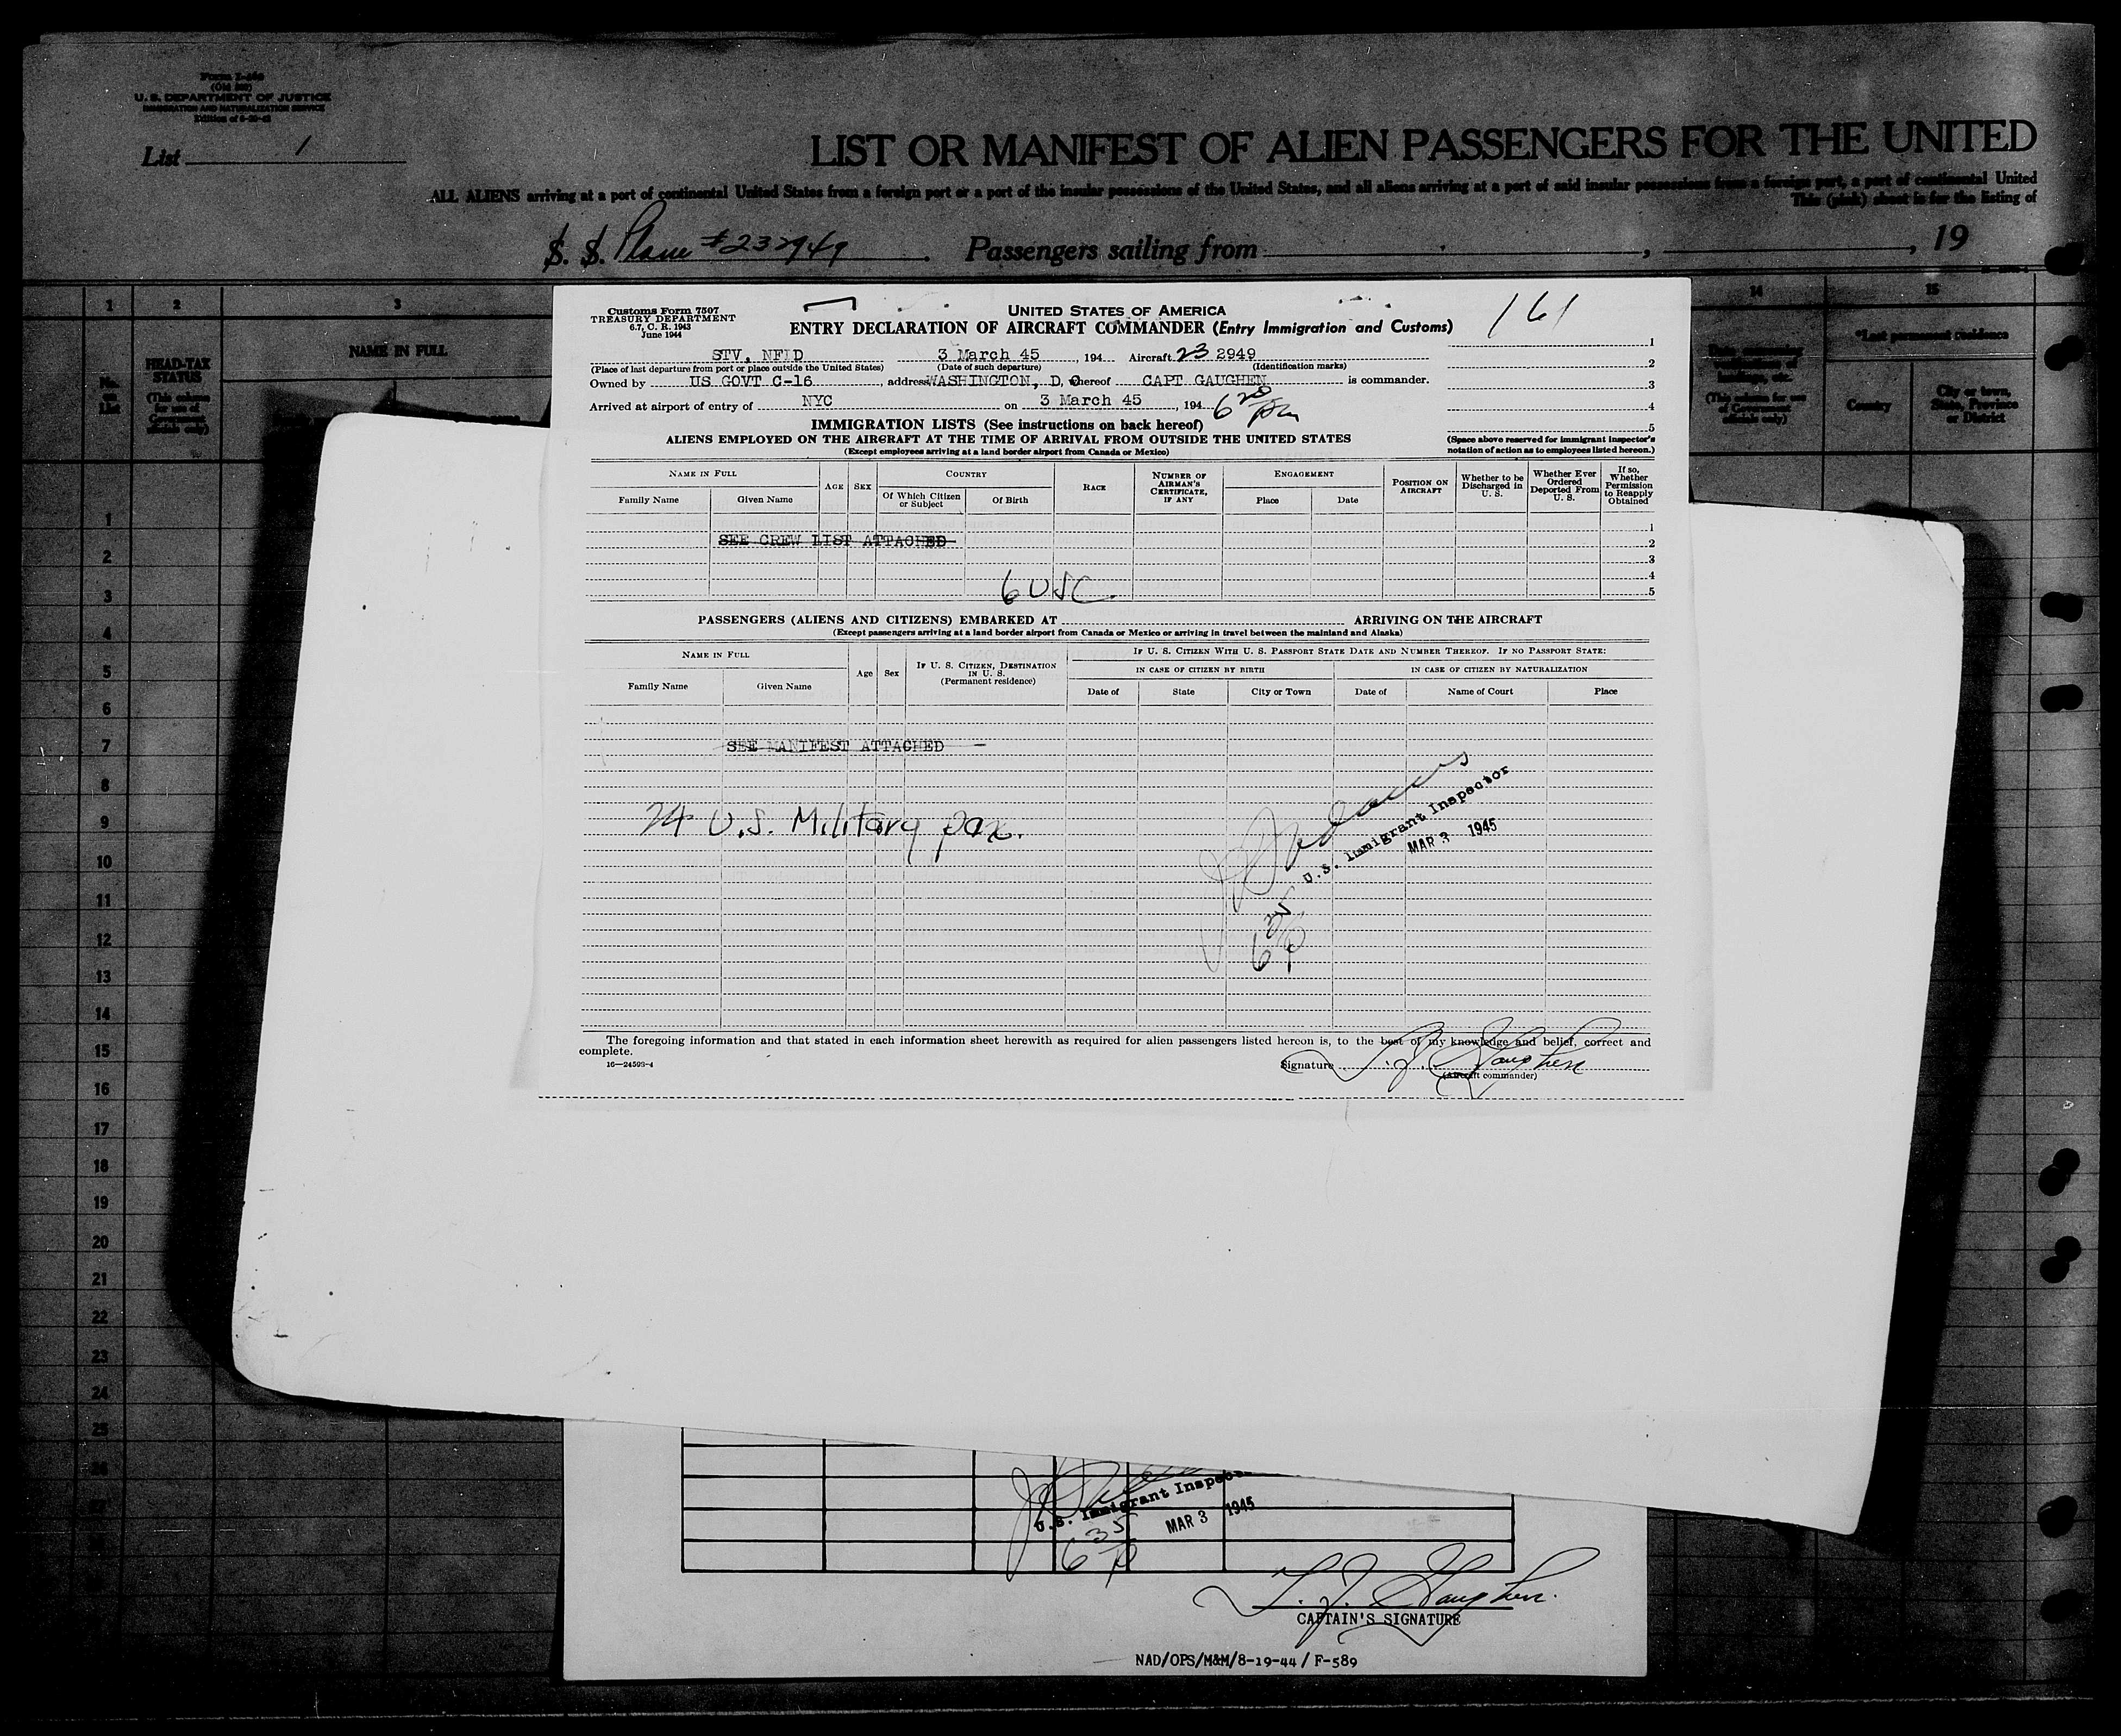 U. S. DEPARTMENT OF JUSTICE
IMMIGRATION AND NATURALIZATION SERVICE
List 1
LIST OR MANIFEST OF ALIEN PASSENGERS FOR THE UNITED
ALL ALIENS arriving at a port of continental United States from a foreign port or a port of the insular possessions of the United States, and all aliens arriving at a port of said insular possessions from a foreign port, a port of continental United
This (pink) sheet is for the listing of
S. S. Plane # 232949 Passengers sailing from , , 19
1 2 3 14 15
No. on List
HEAD-TAX STATUS
(This column for use of Government officials only)
NAME IN FULL
(This column for use of Government officials only)
*Last permanent residence
Country
City or town, State, Province or District
Customs Form 7507
TREASURY DEPARTMENT
6.7, C. R. 1943
June 1944
UNITED STATES OF AMERICA
161
ENTRY DECLARATION OF AIRCRAFT COMMANDER (Entry Immigration and Customs)
STV, NFLD 3 March 45, 194 Aircraft 23 2949
(Place of last departure from port or place outside the United States) (Date of such departure) (Identification marks)
Owned by US GOVT C-16, address WASHINGTON, D.C. thereof CAPT GAUGHEN is commander.
Arrived at airport of entry of NYC on 3 March 45, 194 6 20 pm
1
2
3
4
5
IMMIGRATION LISTS (See instructions on back hereof)
ALIENS EMPLOYED ON THE AIRCRAFT AT THE TIME OF ARRIVAL FROM OUTSIDE THE UNITED STATES
(Except employees arriving at a land border airport from Canada or Mexico)
(Space above reserved for immigrant inspector's notation of action as to employees listed hereon.)
NAME IN FULL
Family Name
Given Name
AGE
SEX
COUNTRY
Of Which Citizen or Subject
Of Birth
RACE
NUMBER OF AIRMAN'S CERTIFICATE, IF ANY
ENGAGEMENT
Place
Date
POSITION ON AIRCRAFT
Whether to be Discharged in U. S.
Whether Ever Ordered Deported From U. S.
If so, Whether Permission to Reapply Obtained
1
SEE CREW LIST ATTACHED 2
3
4
6 USC 5
PASSENGERS (ALIENS AND CITIZENS) EMBARKED AT ARRIVING ON THE AIRCRAFT
(Except passengers arriving at a land border airport from Canada or Mexico or arriving in travel between the mainland and Alaska)
NAME IN FULL
Family Name
Given Name
Age
Sex
IF U. S. CITIZEN, DESTINATION IN U. S.
(Permanent residence)
IF U. S. CITIZEN WITH U. S. PASSPORT STATE DATE AND NUMBER THEREOF. IF NO PASSPORT STATE:
IN CASE OF CITIZEN BY BIRTH
IN CASE OF CITIZEN BY NATURALIZATION
Date of
State
City or Town
Date of
Name of Court
Place
SEE MANIFEST ATTACHED
24 U.S. Military pax.
U.S. Immigrant Inspector
MAR 3 1945
6 35 P
The foregoing information and that stated in each information sheet herewith as required for alien passengers listed hereon is, to the best of my knowledge and belief, correct and
complete.
16—24593-4
Signature T. J. Gaughen
(Aircraft commander)
1
2
3
4
5
6
7
8
9
10
11
12
13
14
15
16
17
18
19
20
21
22
23
24
25
26
27
U.S. Immigrant Inspector
MAR 3 1945
6 35 P
T. J. Gaughen
CAPTAIN'S SIGNATURE
NAD/OPS/M&M/8-19-44 / F-589